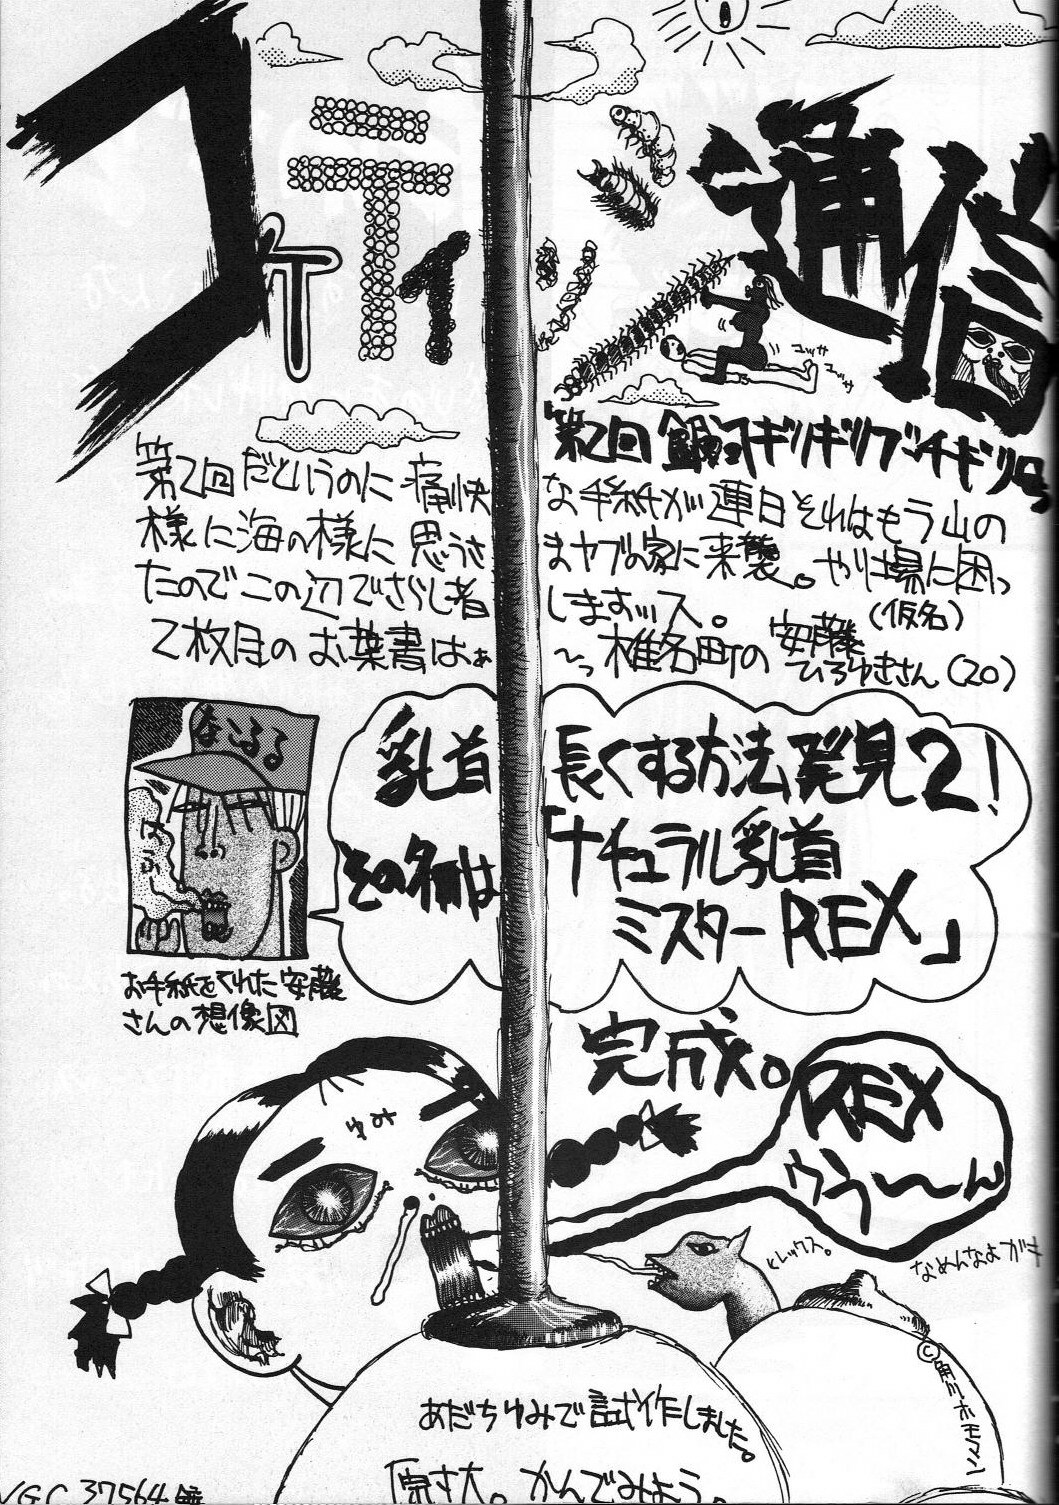 通信
コッサ
コッサ
第2回だというのに痛快な手紙が連日それはもう山の
様に海の様に思うさまヤブの家に来襲。やり場に困っ
たのでこの辺でさらし者しますッス。
2枚目のお葉書はぁ〜っ椎名町の安藤ひろゆきさん(20)
(仮名)
なこるる
乳首長くする方法発見2!
その名は「ナチュラル乳首
ミスターREX」
お手紙をくれた安藤
さんの想像図
完成。
ゆみ
REX
ウうーん
とレックス。
なめんなよガキ
©角川
あだちゆみで試作しました。
原寸大。かんでみよう。
37564